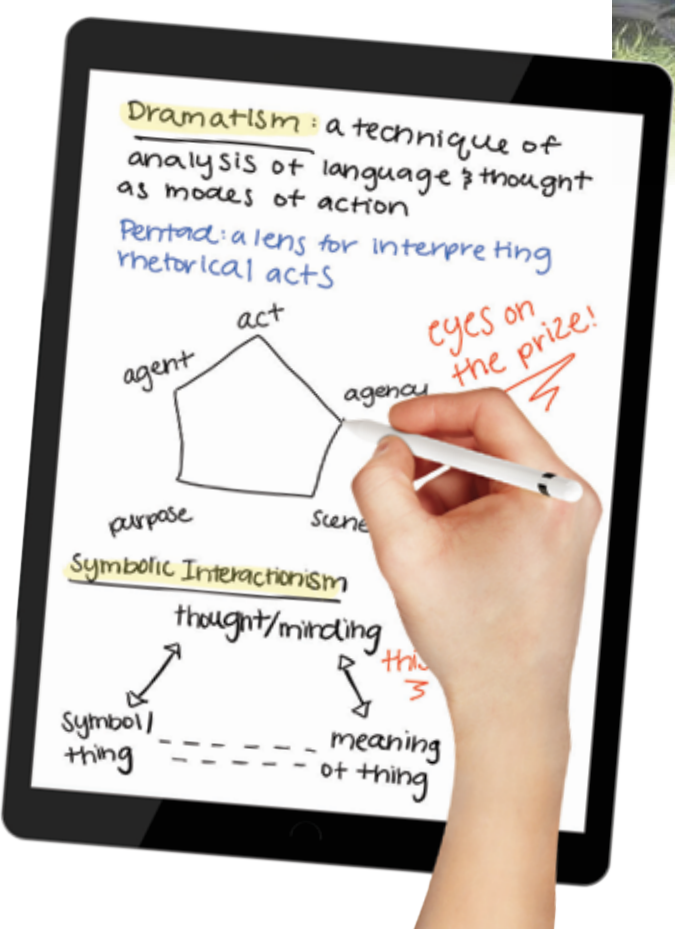 Dramatism: a technique of
analysis of language & thought
as modes of action
Pentad: a lens for interpreting
rhetorical acts
act
eyes on
the prize!
agent
agency
purpose
scene
Symbolic Interactionism
thought/minding
this
symbol/
thing
meaning
of thing